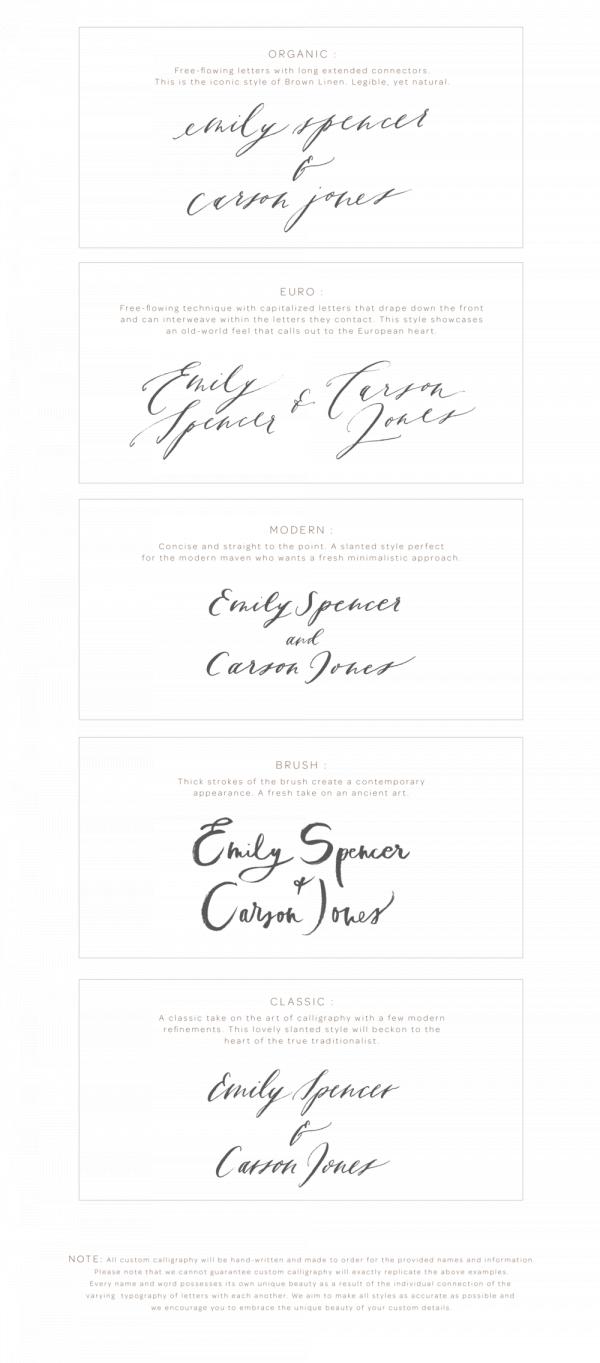 ORGANIC :
Free-flowing letters with long extended connectors.
This is the iconic style of Brown Linen. Legible, yet natural.
emily spencer
&
carson jones
EURO :
Free-flowing technique with capitalized letters that drape down the front
and can interweave within the letters they contact. This style showcases
an old-world feel that calls out to the European heart.
Emily
Spencer
&
Carson
Jones
MODERN :
Concise and straight to the point. A slanted style perfect
for the modern maven who wants a fresh minimalistic approach.
Emily Spencer
and
Carson Jones
BRUSH :
Thick strokes of the brush create a contemporary
appearance. A fresh take on an ancient art.
Emily Spencer
&
Carson Jones
CLASSIC :
A classic take on the art of calligraphy with a few modern
refinements. This lovely slanted style will beckon to the
heart of the true traditionalist.
Emily Spencer
&
Carson Jones
NOTE: All custom calligraphy will be hand-written and made to order for the provided names and information.
Please note that we cannot guarantee custom calligraphy will exactly replicate the above examples.
Every name and word possesses its own unique beauty as a result of the individual connection of the
varying typography of letters with each another. We aim to make all styles as accurate as possible and
we encourage you to embrace the unique beauty of your custom details.